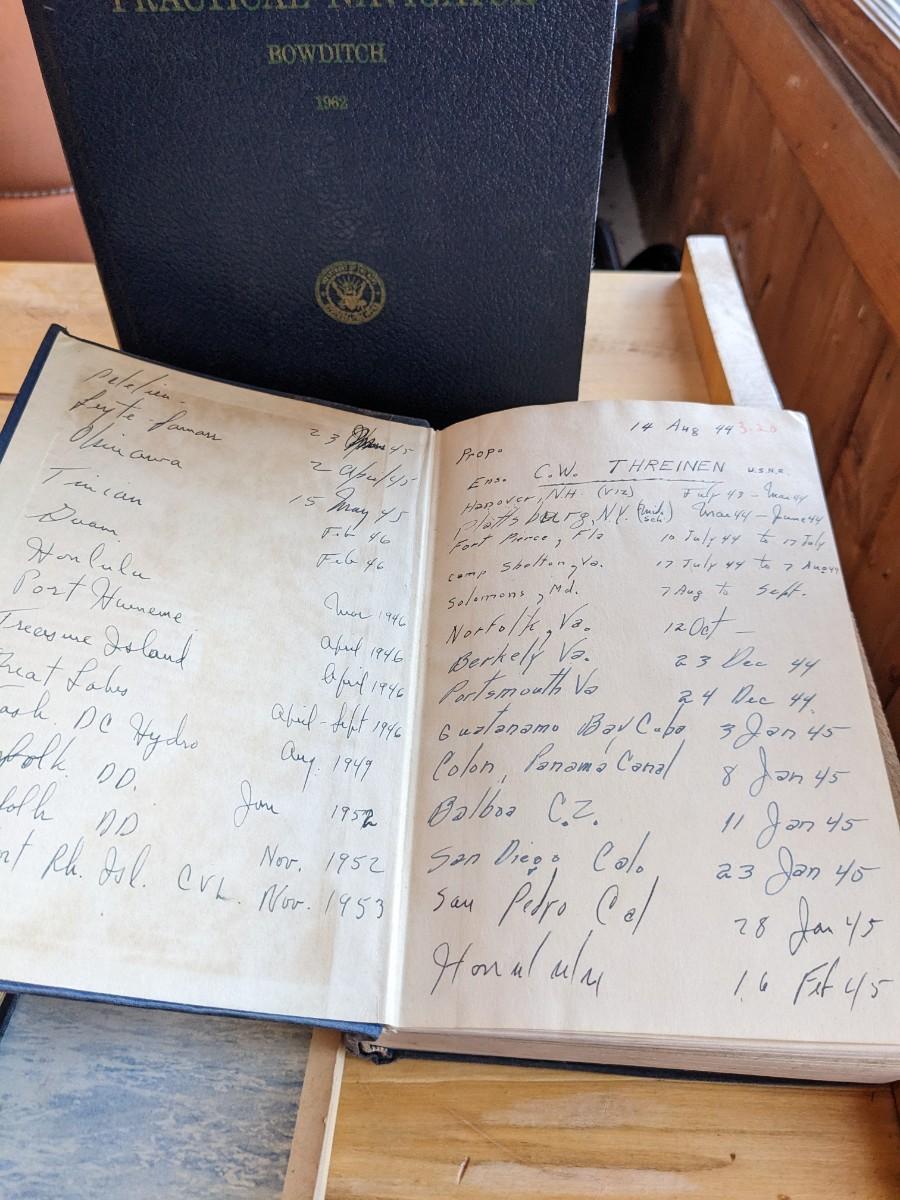 PRACTICAL NAVIGATOR
BOWDITCH
1962
Leyte Samar 23 45
Okinawa 2 April 45
Tinian 15 May 45
Guam Feb 46
Honlulu Feb 46
Port Hueneme Mar 1946
Treasure Island April 1946
Great Lakes April 1946
Wash. DC Hydro April - Sept 1946
Aug. 1949
DD. Jan 1952
DD Nov. 1952
Rh. Isl. CVL. Nov. 1953
14 Aug 44 3.20
Prop.
Ens. C.W. THREINEN U.S.N.R.
Hanover, N.H. (V12) July 43 - Mar 44
Plattsburg, N.Y. (Mid. Sch.) Mar 44 - June 44
Fort Pierce, Fla 10 July 44 to 17 July
Camp Shelton, Va. 17 July 44 to 7 Aug 44
Solomons, Md. 7 Aug to Sept.
Norfolk, Va. 12 Oct -
Berkely Va. 23 Dec 44
Portsmouth Va 24 Dec 44.
Guatanamo Bay Cuba 3 Jan 45
Colon, Panama Canal 8 Jan 45
Balboa C.Z. 11 Jan 45
San Diego Cal. 23 Jan 45
San Pedro Cal 28 Jan 45
Honululu 16 Feb 45